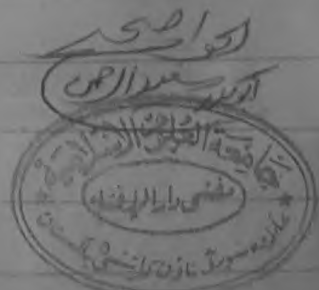 الجواب صحیح
سعید الرحمن
جامعة العلوم الاسلامیة
مفتی دار الافتاء
علامہ بنوری ٹاؤن کراچی پاکستان